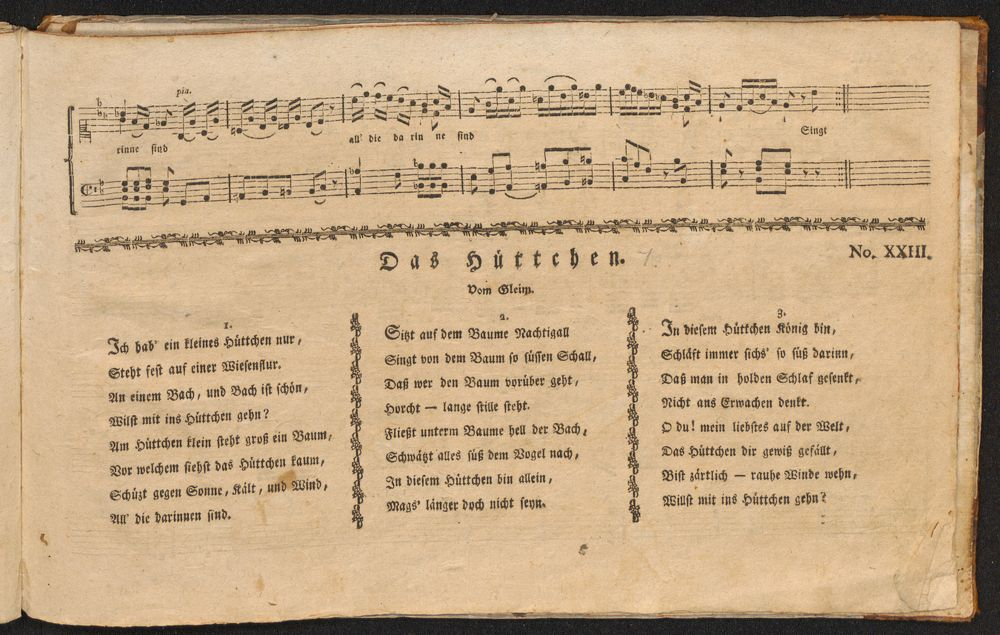 pia.
all' die da rin ne sind
rinne sind
Singt
No. XXIII.
Das Hüttchen.
Vom Gleim.
1.
Ich hab' ein kleines Hüttchen nur,
Steht fest auf einer Wiesenflur.
An einem Bach, und Bach ist schön,
Wilst mit ins Hüttchen gehn?
Am Hüttchen klein steht groß ein Baum,
Vor welchem siehst das Hüttchen kaum,
Schüzt gegen Sonne, Kält, und Wind,
All' die darinnen sind.
2.
Sitzt auf dem Baume Nachtigall
Singt von dem Baum so süssen Schall,
Daß wer den Baum vorüber geht,
Horcht — lange stille steht.
Fließt unterm Baume hell der Bach,
Schwätzt alles süß dem Vogel nach,
In diesem Hüttchen bin allein,
Mags' länger doch nicht seyn.
3.
In diesem Hüttchen König bin,
Schläft immer sichs' so süß darinn,
Daß man in holden Schlaf gesenkt,
Nicht ans Erwachen denkt.
O du! mein liebstes auf der Welt,
Das Hüttchen dir gewiß gefällt,
Bist zärtlich — rauhe Winde wehn,
Willst mit ins Hüttchen gehn?